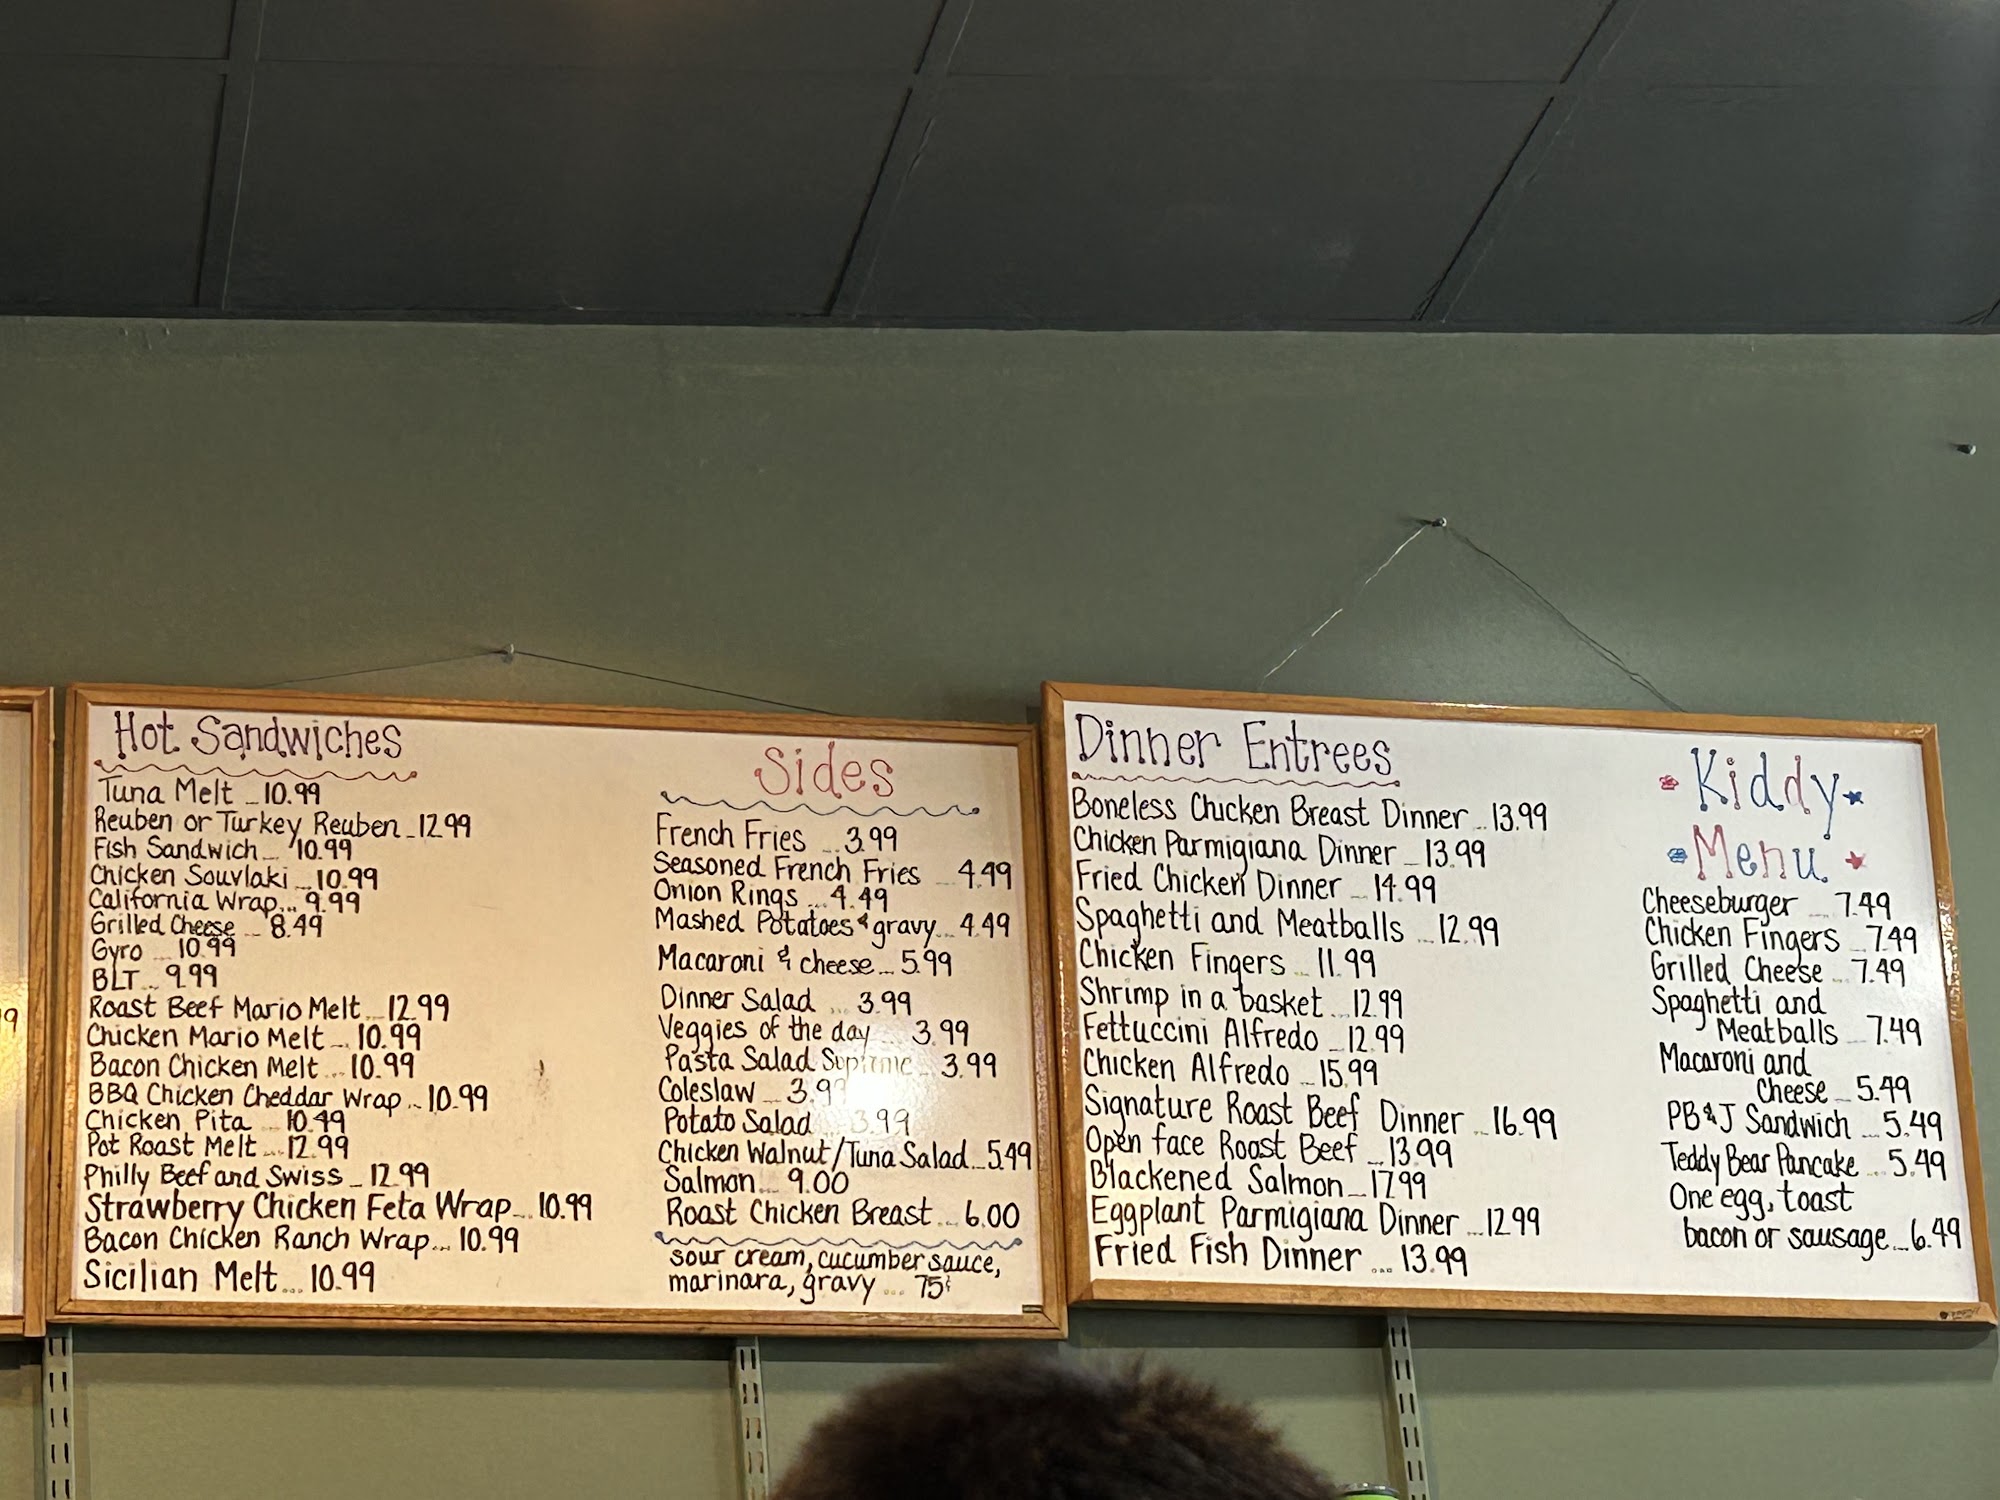 9
Hot Sandwiches
Tuna Melt ... 10.99
Reuben or Turkey Reuben ... 12.99
Fish Sandwich ... 10.99
Chicken Souvlaki ... 10.99
California Wrap ... 9.99
Grilled Cheese ... 8.49
Gyro ... 10.99
BLT ... 9.99
Roast Beef Mario Melt ... 12.99
Chicken Mario Melt ... 10.99
Bacon Chicken Melt ... 10.99
BBQ Chicken Cheddar Wrap ... 10.99
Chicken Pita ... 10.49
Pot Roast Melt ... 12.99
Philly Beef and Swiss ... 12.99
Strawberry Chicken Feta Wrap ... 10.99
Bacon Chicken Ranch Wrap ... 10.99
Sicilian Melt ... 10.99
Sides
French Fries ... 3.99
Seasoned French Fries ... 4.49
Onion Rings ... 4.49
Mashed Potatoes & gravy ... 4.49
Macaroni & cheese ... 5.99
Dinner Salad ... 3.99
Veggies of the day ... 3.99
Pasta Salad Supreme ... 3.99
Coleslaw ... 3.99
Potato Salad 3.99
Chicken Walnut/Tuna Salad ... 5.49
Salmon ... 9.00
Roast Chicken Breast ... 6.00
sour cream, cucumber sauce,
marinara, gravy ... 75¢
Dinner Entrees
Boneless Chicken Breast Dinner ... 13.99
Chicken Parmigiana Dinner ... 13.99
Fried Chicken Dinner ... 14.99
Spaghetti and Meatballs ... 12.99
Chicken Fingers ... 11.99
Shrimp in a basket ... 12.99
Fettuccini Alfredo ... 12.99
Chicken Alfredo ... 15.99
Signature Roast Beef Dinner ... 16.99
Open face Roast Beef ... 13.99
Blackened Salmon ... 17.99
Eggplant Parmigiana Dinner ... 12.99
Fried Fish Dinner ... 13.99
Kiddy
Menu
Cheeseburger ... 7.49
Chicken Fingers ... 7.49
Grilled Cheese ... 7.49
Spaghetti and
Meatballs ... 7.49
Macaroni and
Cheese ... 5.49
PB&J Sandwich ... 5.49
Teddy Bear Pancake ... 5.49
One egg, toast
bacon or sausage ... 6.49